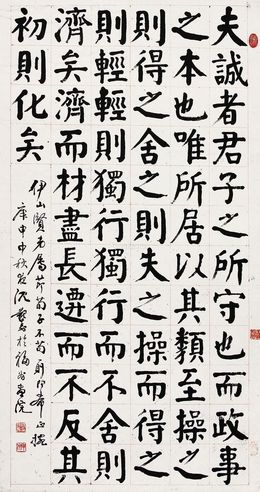 夫誠者君子之所守也而政事
之本也唯所居以其類至操
則得之舍之則失之操而得之
則輕輕則獨行獨行而不舍則
濟矣濟而材盡長遷而不反其
初則化矣
伊山賢弟屬節荀子不苟即希正
庚申中秋沈於福州畫院